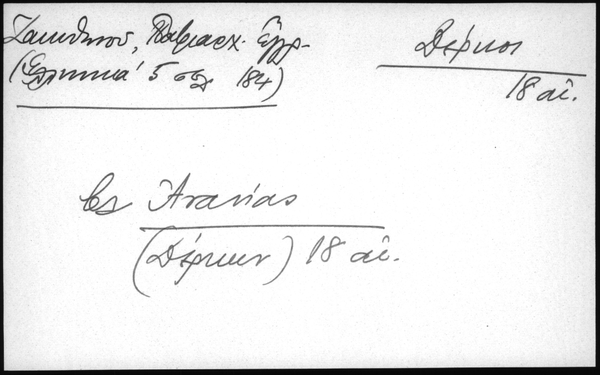 Ζακυθηνού, Πατριαρχ. Έγγρ.
(Ελληνικά 5 σελ 184)
Δέρκοι
18 αἰ.
Ἀνανίας
(Δέρκων) 18 αἰ.